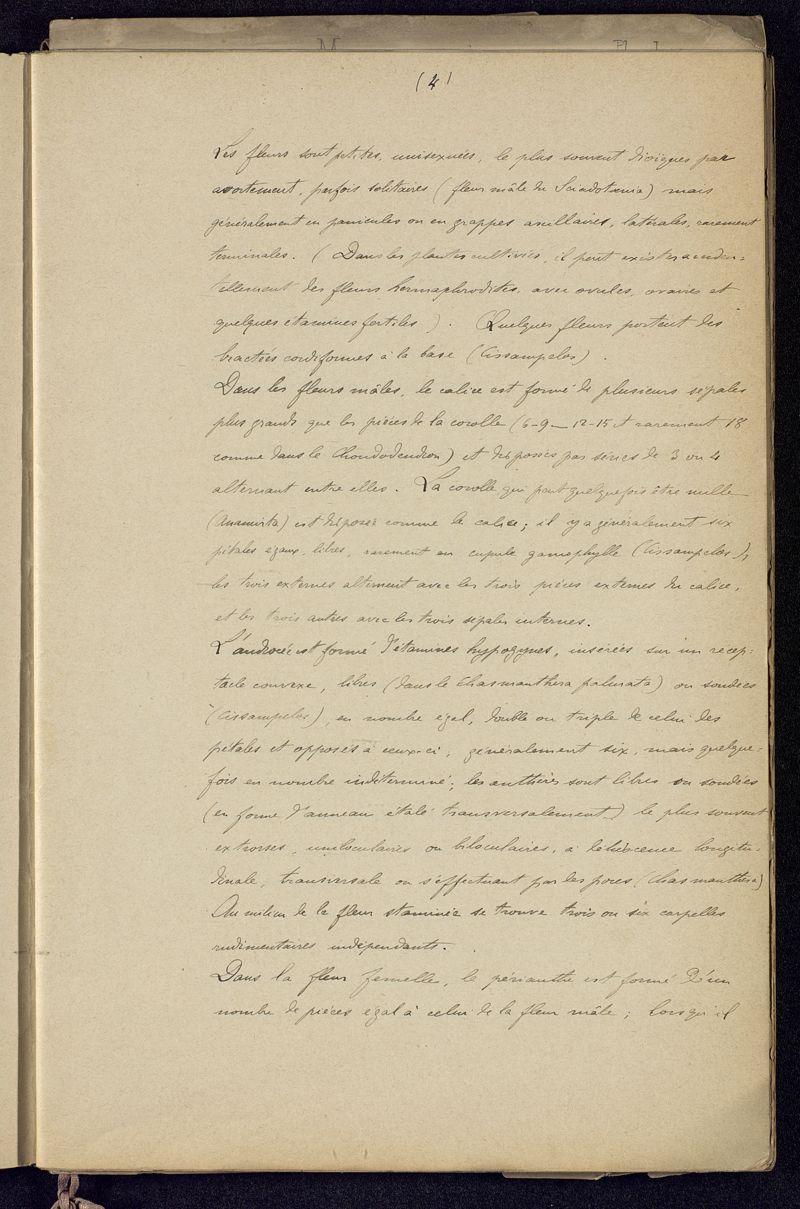 (4)
Les fleurs sont petites, unisexuées, le plus souvent dioïques par
avortement, parfois solitaires (fleur mâle du Sciadotœnia) mais
généralement en panicules ou en grappes axillaires, latérales, rarement
terminales. (Dans les plantes cultivées, il peut exister acciden-
tellement des fleurs hermaphrodites, avec ovules, ovaires et
quelques étamines fertiles). Quelques fleurs portent des
bractées cordiformes à la base (Cissampelos).
Dans les fleurs mâles, le calice est formé de plusieurs sépales
plus grands que les pièces de la corolle (6-9-12-15 et rarement 18
comme dans le Chondodendron) et disposés par séries de 3 ou 4
alternant entre elles. La corolle qui peut quelquefois être nulle
(Anamirta) est disposée comme le calice; il y a généralement six
pétales égaux, libres, rarement en cupule gamophylle (Cissampelos),
les trois externes alternent avec les trois pièces externes du calice,
et les trois autres avec les trois sépales internes.
L'androcée est formé d'étamines hypogynes, insérées sur un récep-
tacle convexe, libres (dans le Chasmanthera palmata) ou soudées
(Cissampelos), en nombre égal, double ou triple de celui des
pétales et opposés à ceux-ci, généralement six, mais quelque-
fois en nombre indéterminé; les anthères sont libres ou soudées
(en forme d'anneau étalé transversalement) le plus souvent
extrorses, uniloculaires ou biloculaires, à déhiscence longitu-
dinale, transversale ou s'effectuant par les pores (Chasmanthera)
Au milieu de la fleur staminée se trouve trois ou six carpelles
rudimentaires indépendants.
Dans la fleur femelle, le périanthe est formé d'un
nombre de pièces égal à celui de la fleur mâle; lorsqu'il